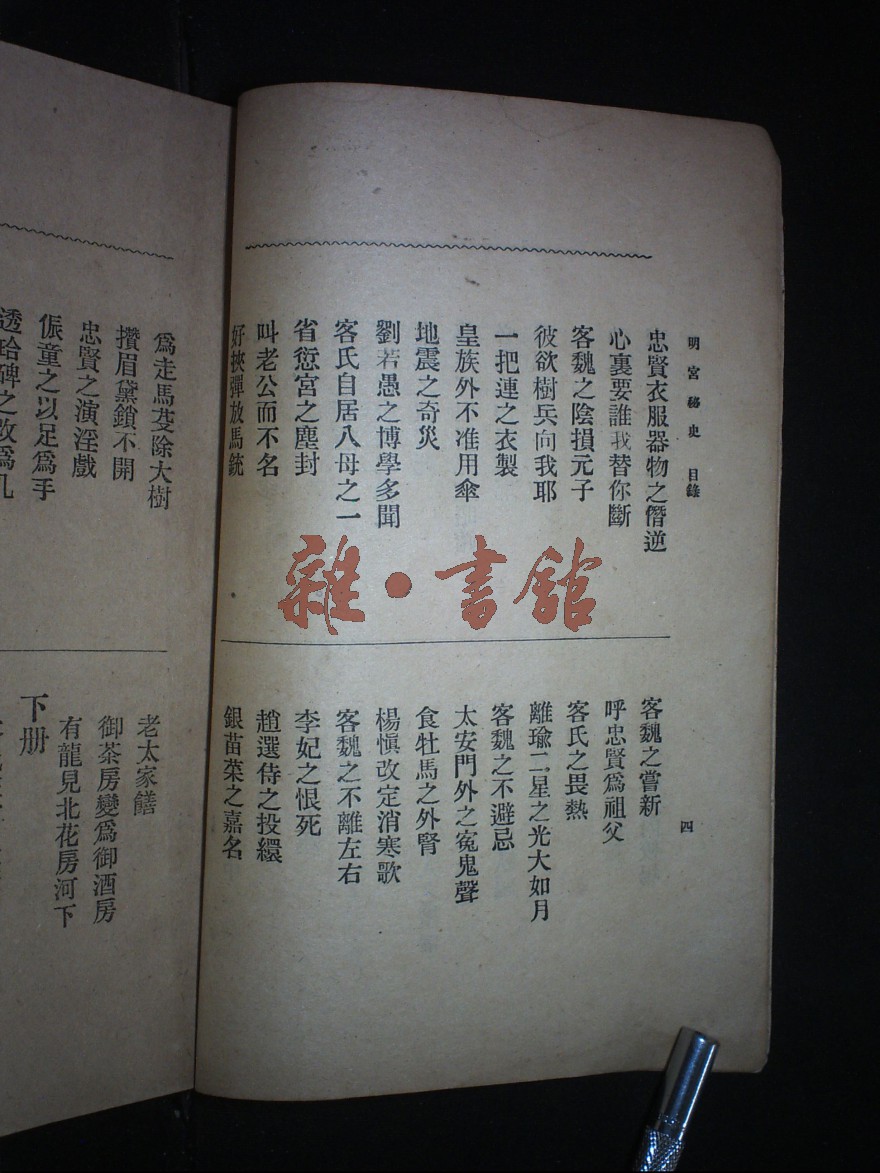 明宮秘史 目錄
四
忠賢衣服器物之僭逆
心裏要誰我替你斷
客魏之陰損元子
彼欲樹兵向我耶
一把連之衣製
皇族外不准用傘
地震之奇災
劉若愚之博學多聞
客氏自居八母之一
省愆宮之塵封
叫老公而不名
好挾彈放馬銃
客魏之嘗新
呼忠賢爲祖父
客氏之畏熱
離瑜二星之光大如月
客魏之不避忌
太安門外之寃鬼聲
食牡馬之外腎
楊愼改定消寒歌
客魏之不離左右
李妃之恨死
趙選侍之投繯
銀苗菜之嘉名
爲走馬芟除大樹
攢眉黛鎖不開
忠賢之演淫戲
侲童之以足爲手
透玲碑之改爲几
老太家饍
御茶房變爲御酒房
有龍見北花房河下
下册
雜·書館